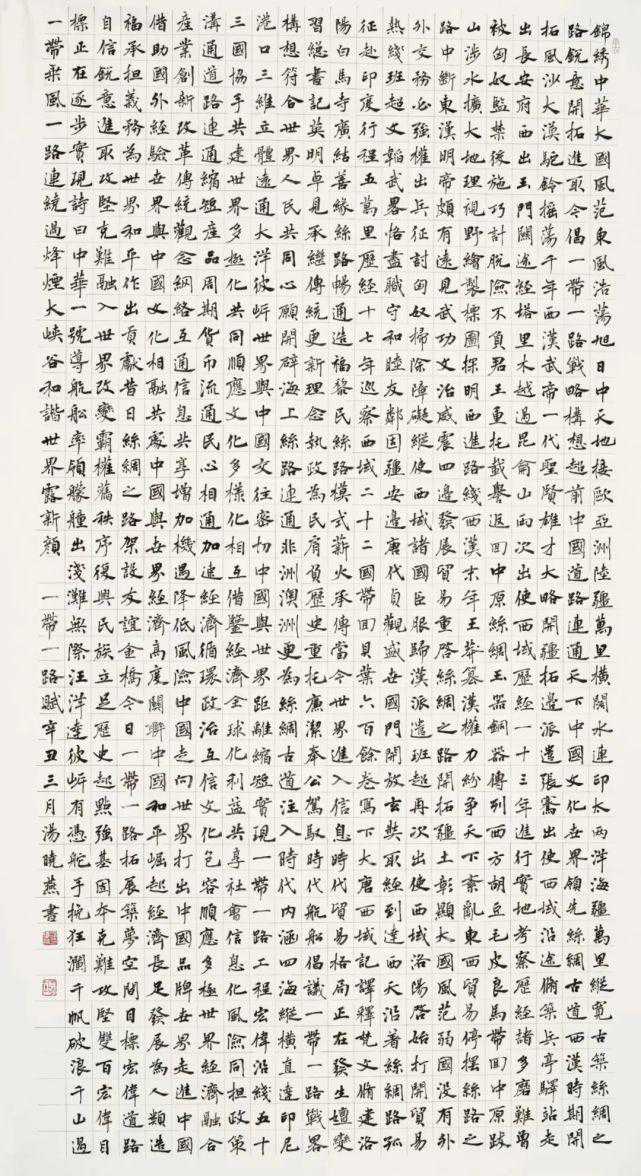 錦綉中華大國風范東風浩蕩旭日中天地接歐亞洲陸疆萬里橫闊水連印太兩洋海疆萬里縱寬古築絲綢之
路銳意開拓進取今倡一帶一路戰略構想超前中國道路連通天下中國文化世界領先絲綢古道西漢時期開
拓風沙大漠駝鈴搖蕩千年西漢武帝一代聖賢雄才大略開疆拓邊下派遣張騫出使西域沿途俯築兵亭驛站走
出長安府出玉門關途經塔里木過昆侖山兩次出使西域歷經十三年進行實地考察歷經諸多磨難曾
被匈奴監禁後施巧計脫險不負君王重托載譽返回中原絲綢玉器銅器傳列西方胡豆毛皮良馬帶回中原跋
山涉水擴大地理視野繪製標圖探明進路綫西漢末年王莽篡漢權力紛爭天下紊亂東西貿易停擺絲綢之
路中斷東漢明帝頗有遠見武功文治威震四邊發展貿易重啓絲綢之路開拓疆土彰顯大國風范弱國没有外
外交務必強權出兵征討匈奴掃除障礙縱使西域諸國臣服歸漢派遣班超再次出使西域洛陽啓始打開貿易
熱綫班超文韜武略恪盡職守和睦友鄰固疆安邊唐代貞觀盛世國門開放玄奘取經到達西天沿着絲綢路孤
征赴印度行程五萬里歷經十七年巡察西域二十二國帶回葉六百餘卷寫下大唐西域記譯釋梵文俯建洛
陽白馬寺廣結善緣絲路暢通造福黎民絲路模式薪火承傳當今世界進入信息時代貿易格局正在發生嬗變
習總書記英明卓見承變傳統更新理念執政為民肩負歷史重托廣潔奉公駕馭時代航船倡議一帶一路戰略
構想符合世界人民共同心願開辟海上絲路連通非洲澳洲更為絲綢古道注入時代內涵四海縱橫直達印尼
港口三維立體遠通大洋彼岸世界與中國文往密切中國與世界距離縮短實現一帶一路工程宏偉沿綫五十
三國協手共建世界多極化共同順應文化多樣化相互借鑒經濟全球化利益共享社會信息化風險同担政策
溝通道路連通縮短產品周期貨幣流通民心相通加速經濟循環政治互信文化包容順應多極世界經濟融合
產業創新改革傳統觀念網絡互通信息共享增加機遇降低風險中國走向世界打出中國品牌世界走進中國
借助國外經驗世界與中國文化相融共處中國與世界經濟高風聯中國和平崛起經濟長足發展為人類造
福承担義務為世界和平作出貢獻昔日絲綢之路架設友誼金橋今日一帶一路拓展築夢空間目標宏偉道路
自信銳意進取攻堅克難融入世界改變霸權舊秩序復興民族立足歷史起點強基固本克難攻堅雙百宏偉目
標正在逐步實現詩曰中華一號導航船率領艨艟出淺灘無際汪洋達彼岸有憑舵手挽狂瀾千帆破浪千山過
一帶乘風一路連統過烽煙大峽谷和諧世界露新顏 一帶一路賦辛丑三月湯曉燕書